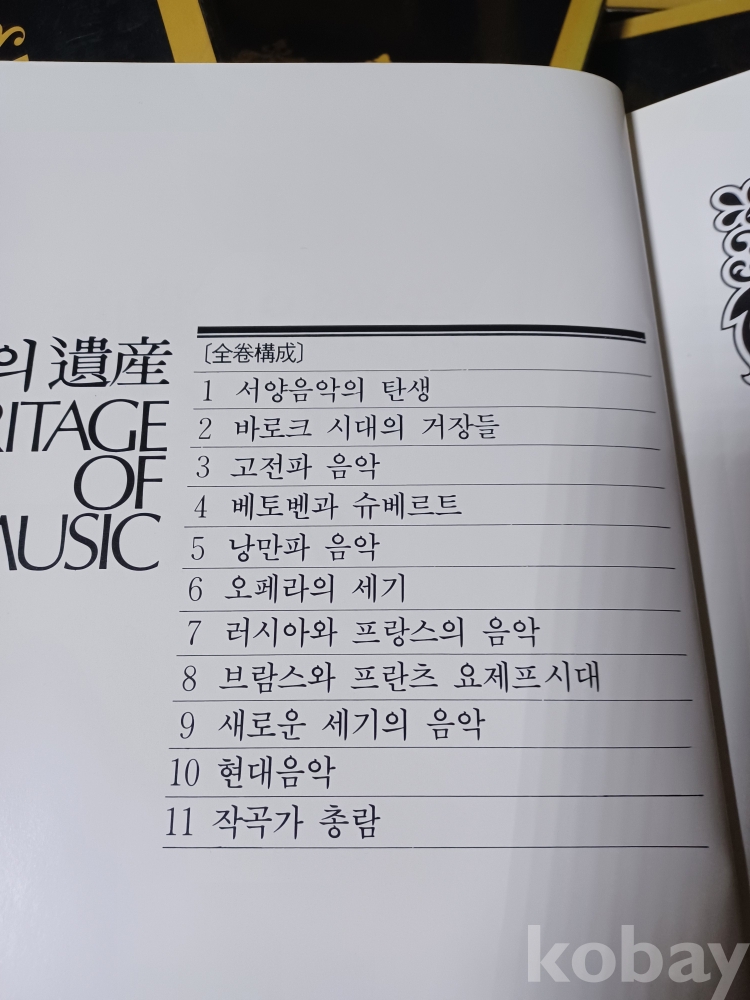 의 遺産
RITAGE
OF
MUSIC
〔全卷構成〕
1 서양음악의 탄생
2 바로크 시대의 거장들
3 고전파 음악
4 베토벤과 슈베르트
5 낭만파 음악
6 오페라의 세기
7 러시아와 프랑스의 음악
8 브람스와 프란츠 요제프시대
9 새로운 세기의 음악
10 현대음악
11 작곡가 총람
kobay